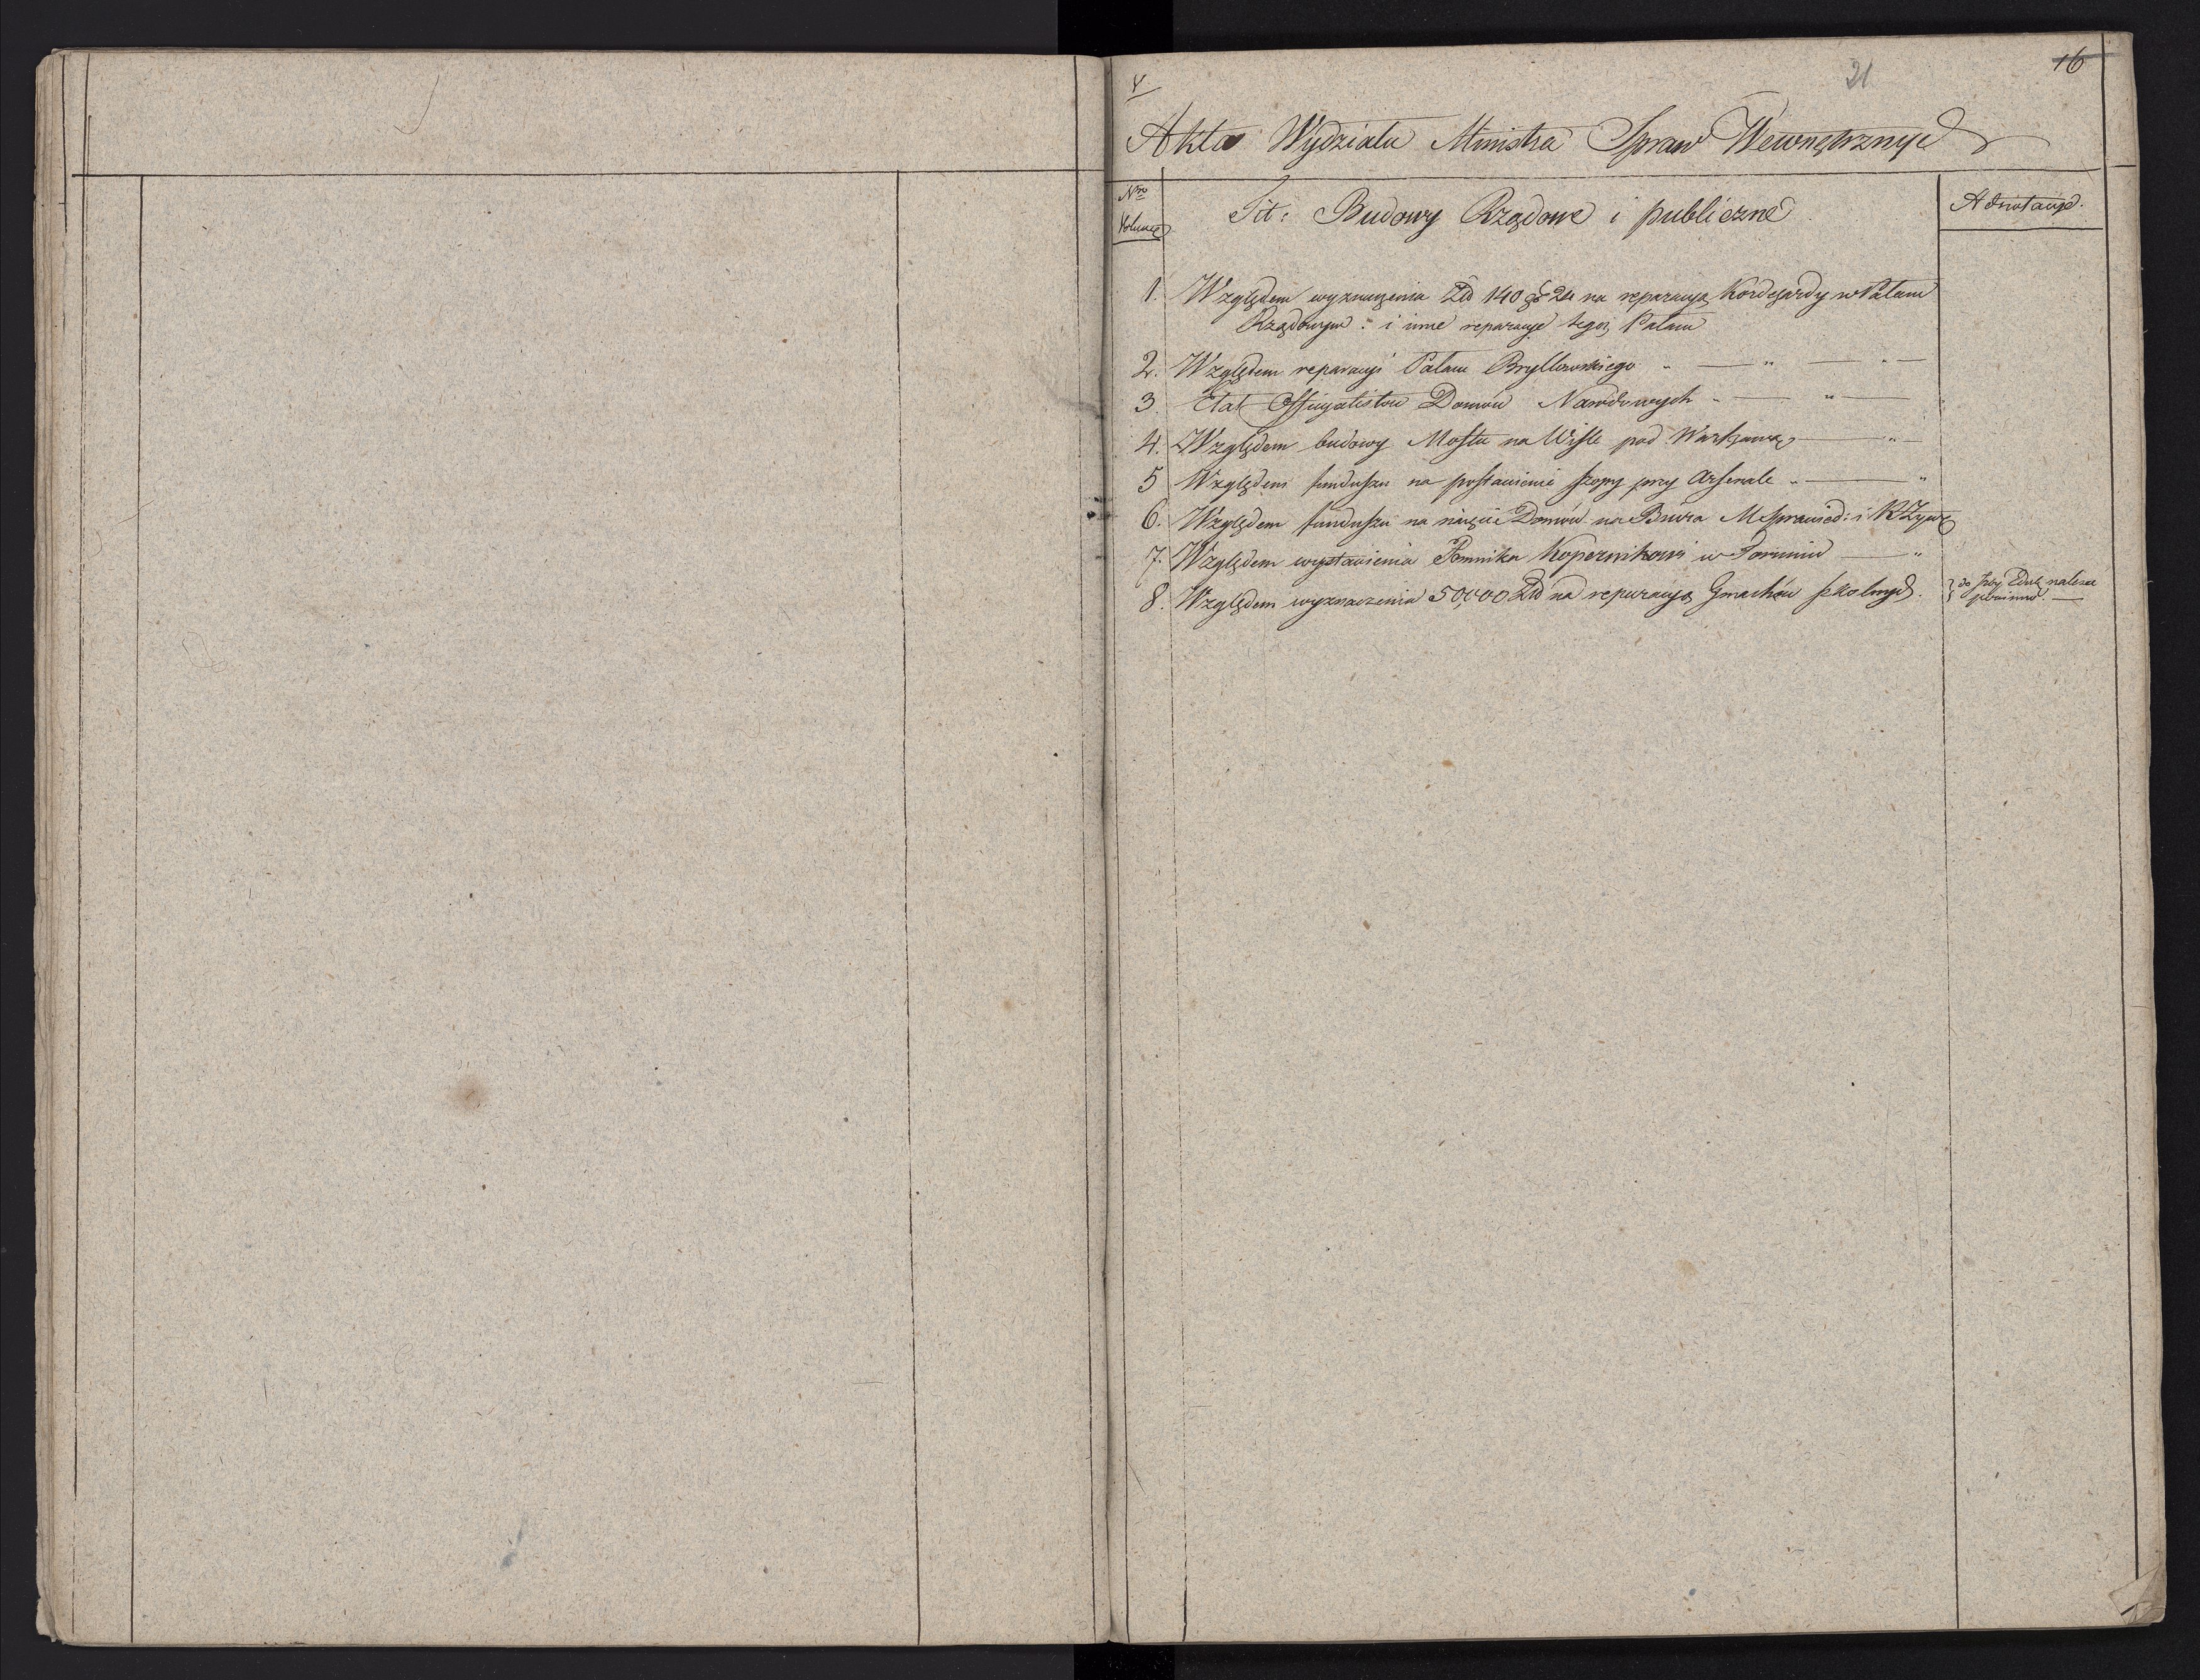 4
21
16
Akta Wydziału Ministra Spraw Wewnętrznych
Nro Volumen
Tit: Budowy Rządowe i publiczne
Adnotacije.
1. Względem wyznaczenia Złł 140 gr 24 na reparacyą Kordygardy w Pałacu
Rządowym: i inne reparacye tegoż Pałacu
2. Względem reparacyi Pałacu Bryllowskiego " — " — " —
3. Etat Officyalistow Domów Narodowych " — " —
4. Względem budowy Mostu na Wiśle pod Warszawą — " —
5 Względem funduszu na postawienie szopy przy Arsenale " — "
6. Względem funduszu na najęcie Domów na Biura M Sprawied: i
7. Względem wystawienia Pomnika Kopernikowi w Toruniu — "
8. Względem wyznaczenia 50,000 Złł na reparacyą Gmachów szkolnych.
do Izby Eduk należeć
powinno. —